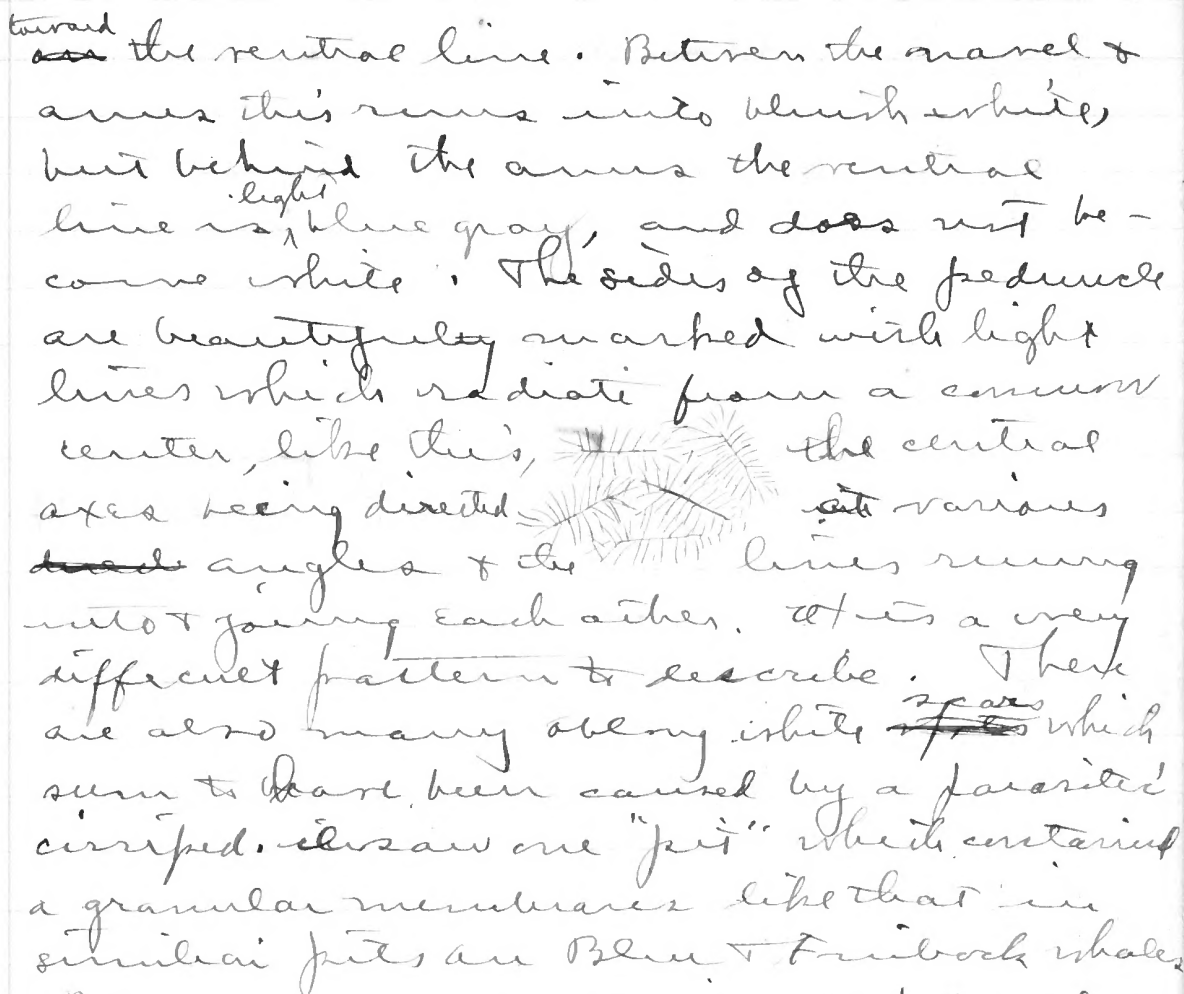 toward
the ventral line. Between the navel &
anus this runs into bluish white,
but behind the anus the ventral
light
line is blue gray, and does not be-
come white. The sides of the peduncle
are beautifully marked with light
lines which radiate from a common
center, like this, the central
axes being directed at various
angles & the lines runing
into & joining each other. It is a very
difficult pattern to describe. There
scars
are also many oblong white which
seem to have been caused by a parasitic
cirriped. I saw one "pit" which contained
a granular membranes like that in
similiar pits on Blue & Finback whales